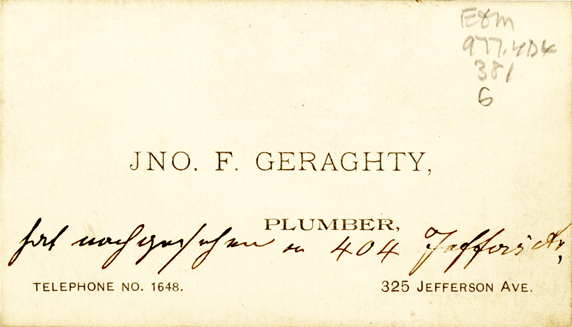 E&M
977.4D4
381
G
JNO. F. GERAGHTY,
PLUMBER,
hat nachgesehen in 404 Jefferson Av,
TELEPHONE NO. 1648.
325 JEFFERSON AVE.